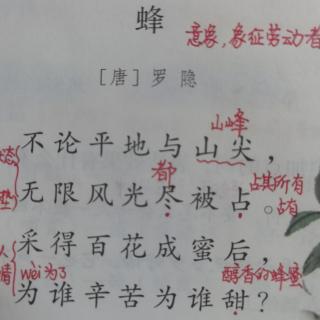 蜂
意象,象征劳动者
[唐]罗隐
山峰
不论平地与山尖,
都
占其所有
无限风光尽被占。
占有
采得百花成蜜后,
wèi为了
醇香的蜂蜜
为谁辛苦为谁甜?